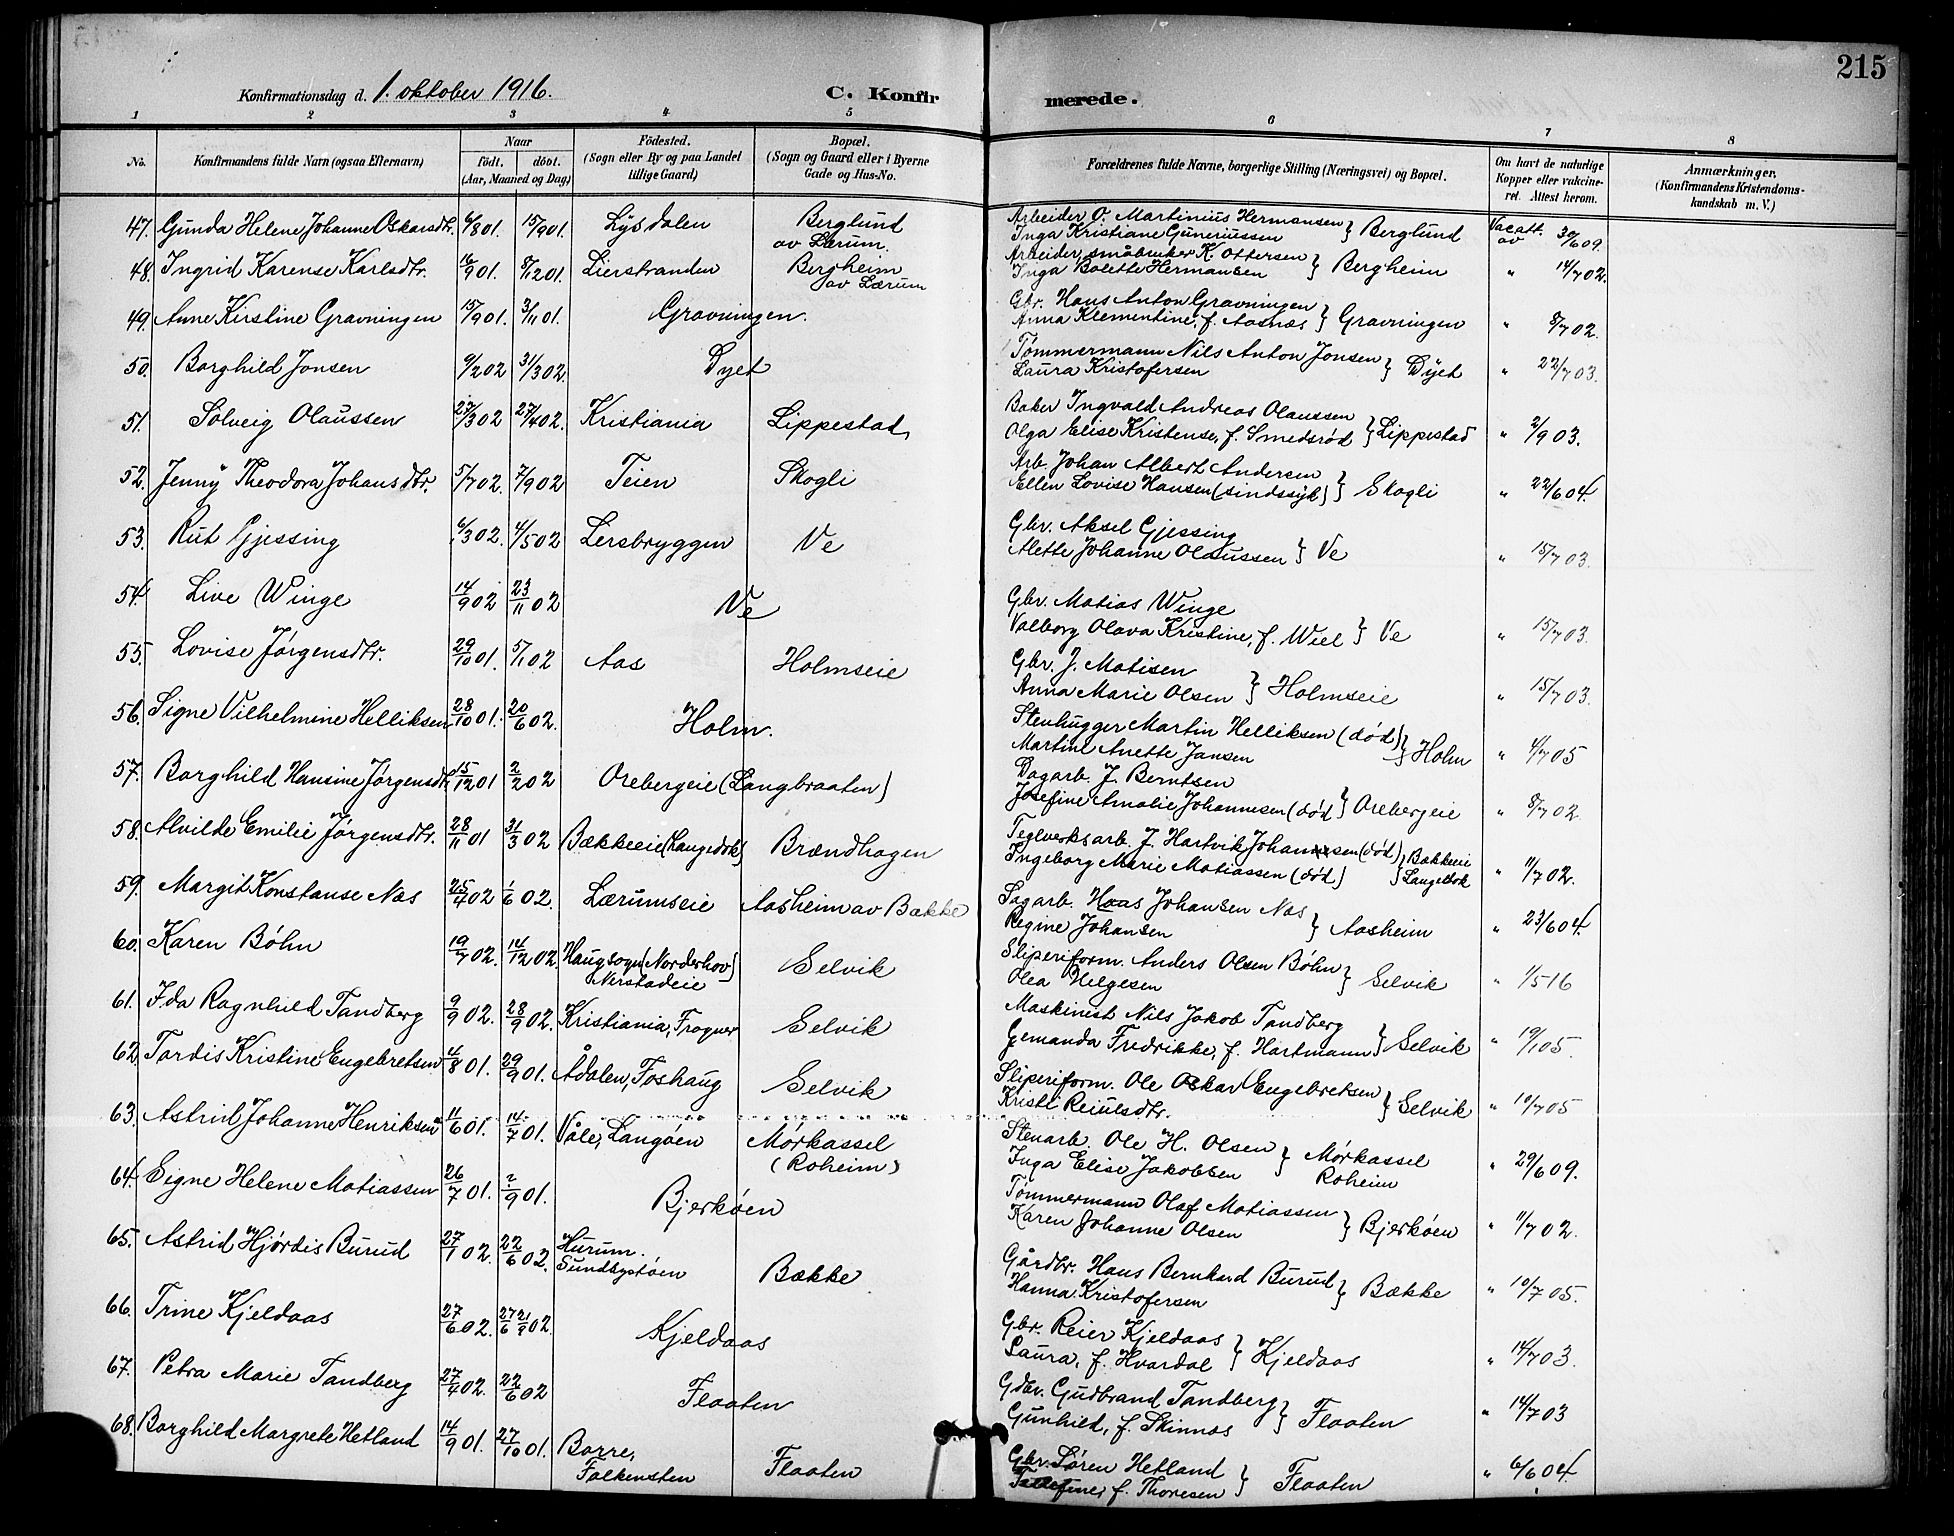 215
Konfirmationsdag d. 1. oktober 1916. C. Konfirmerede.
1 2 3 4 5 6 7 8
No. Konfirmandens fulde Navn (ogsaa Efternavn) Naar født. døbt. (Aar, Maaned og Dag) Födested. (Sogn eller By og paa Landet tillige Gaard) Bopæl. (Sogn og Gaard eller i Byerne Gade og Hus-No. Forældrenes fulde Navne, borgerlige Stilling (Næringsvei) og Bopæl. Om havt de naturlige Kopper eller vakcineret. Attest herom. Anmærkninger. (Konfirmandens Kristendomskundskab m. V.)
47. Gunda Helene Johanne Oskarsdtr. 6/801. 15/901. Lysdalen Berglund av Lærum. Arbeider O. Martinius Hermansen Inga Kristiane Guneriussen } Berglund Vac att. av 30/609.
48. Ingrid Karense Karlsdtr. 16/901. 8/1201. Lierstranden Bergheim av Lærum Arbeider, småbruker K. Ottersen Inga Bolette Hermansen } Bergheim " 14/702.
49. Anne Kirstine Gravningen 15/901. 3/1101. Gravningen. Gbr. Hans Anton Gravningen Anna Klementine, f. Aasnæs } Gravningen " 8/702.
50. Borghild Jonsen 9/202 31/302. Dyet Tømmermann Nils Anton Jonsen Laura Kristofersen } Dyet " 22/703.
51. Solveig Olaussen 27/302 27/402. Kristiania Lippestad Baker Ingvald Andreas Olaussen Olga Elise Kristense, f. Smedsrød } Lippestad " 2/903.
52. Jenny Theodora Johansdtr. 5/702. 7/902 Teien Skogli Arb. Johan Albert Andersen Ellen Lovise Hansen (sindssyk) } Skogli " 22/604.
53. Rut Gjessing 6/302. 4/502 Lersbryggen Ve Gbr. Aksel Gjessing Alette Johanne Olaussen } Ve " 15/703.
54. Live Winge 14/902 23/1102 Ve Gbr. Matias Winge Valborg Olava Kristine, f. Wiel } Ve " 15/703.
55. Lovise Jørgensdtr. 29/1001. 5/102 Aas Holmseie Gbr. J. Matisen Anna Marie Olsen } Holmseie " 15/703.
56. Signe Vilhelmine Helliksen 28/1001. 20/602. Holm. Stenhugger Martin Helliksen (død) Martine Anette Jansen } Holm " 4/705
57. Borghild Hansine Jørgensdtr. 15/1201 2/202 Orebergeie (Langbraaten) Dagarb. J. Berntsen Josefine Amalie Johannesen (død) } Orebergeie " 8/702.
58. Alvilde Emilie Jørgensdtr. 28/1101 31/302 Bækkeeie (Langedok) Brændhagen Teglverksarb. J. Hartvik Johannsen (død) Ingeborg Marie Matiassen (død) } Bækkeeie Langedok " 11/702.
59. Margit Konstanse Næs 25/402 1/602. Lærumseie Aasheim av Bække Sagarb. Haas Johansen Næs Regine Johansen } Aasheim " 23/604.
60. Karen Bøhn 19/702. 14/1202. Haugsogn (Norderhov) Nirstadeie Selvik Sliperiform. Anders Olsen Bøhn Olea Helgesen } Selvik " 1/516
61. Ida Ragnhild Tandberg 9/902. 28/902. Kristiania, Frogner Selvik Maskinist Nils Jakob Tandberg Gemanda Fredrikke, f. Hartmann } Selvik " 19/105.
62. Tordis Kristine Engebretsen 4/801. 29/901. Ådalen, Foshaug Selvik Sliperiform. Ole Oskar Engebretsen Kristi Reiulsdtr. } Selvik " 10/705
63. Astrid Johanne Henriksen 11/601. 14/701. Våle, Langøen Mørkassel (Roheim) Stenarb. Ole H. Olsen Inga Elise Jakobsen } Mørkassel Roheim " 29/609.
64. Signe Helene Matiassen 26/701. 2/901. Bjerkøen Tømmermann Olaf Matiassen Karen Johanne Olsen } Bjerkøen " 11/702.
65. Astrid Hjørdis Burud 27/102. 22/602. Hurum. Sundbystøen Bække Gårdbr. Hans Bernhard Burud Hanna Kristofersen } Bække " 10/705.
66. Trine Kjeldaas 27/602. 27/6 21/902. Kjeldaas Gbr. Reier Kjeldaas Laura, f. Hvardal } Kjeldaas " 14/703.
67. Petra Marie Tandberg 27/402. 22/602 Flaaten Gdbr. Gudbrand Tandberg Gunhild, f. Skinnæs } Flaaten " 14/703
68. Borghild Margrete Hetland 14/901. 27/1001. Borre, Falkensten Flaaten Gbr. Søren Hetland f. Thoresen } Flaaten " 6/604.